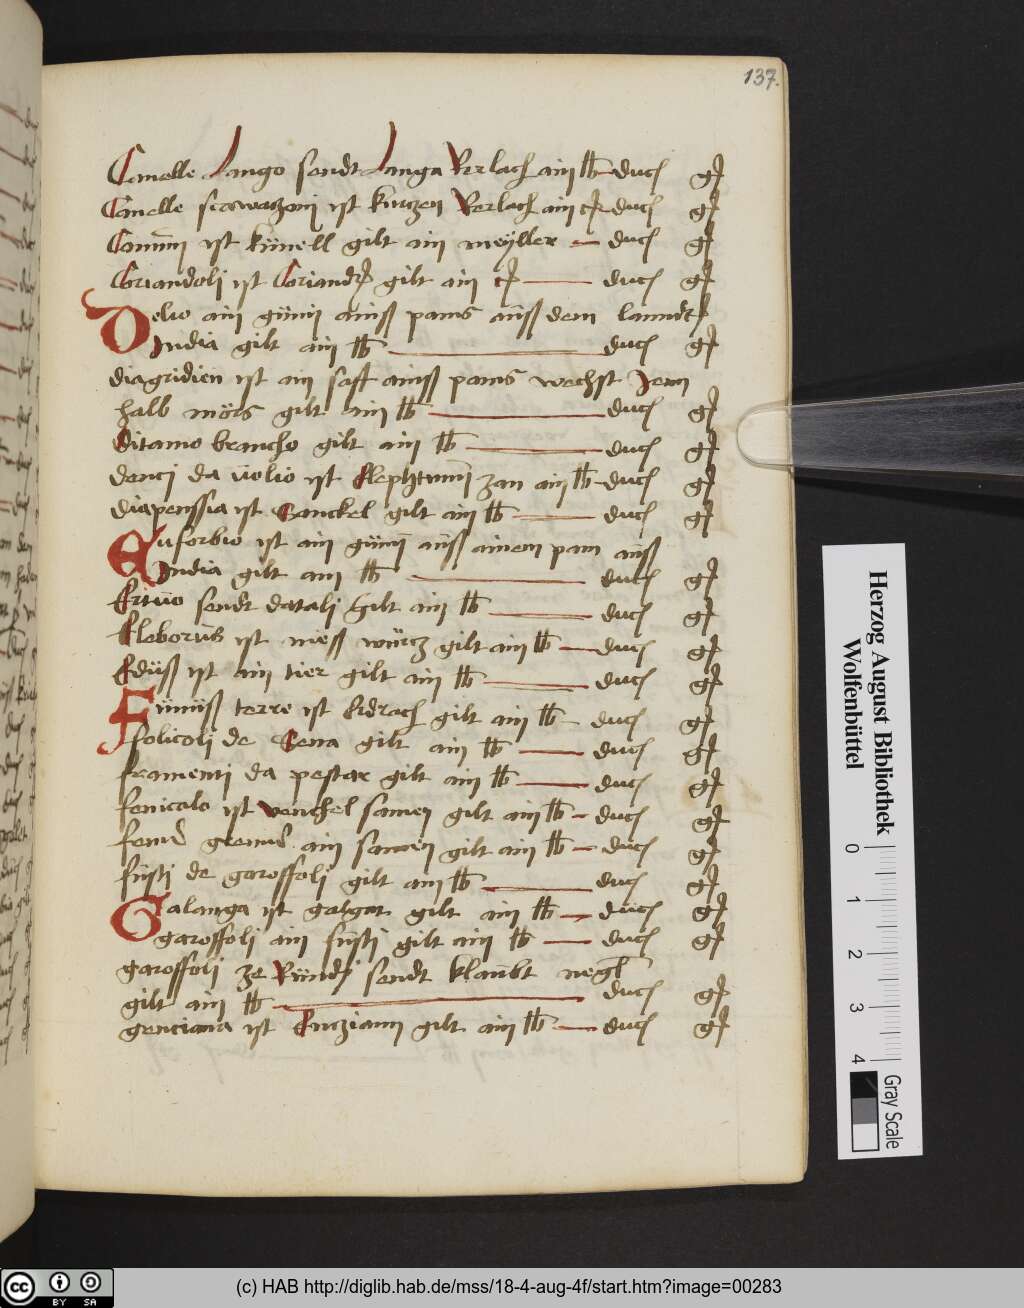 137.
Canelle Lango sendt Langa Rerlach ain lb duc
Canelle ist kurczen Rerlach ain duc
ist kümell gilt ain meÿller duc
Coriandoli ist Coriandr gilt ain duc
Delio ain gümi ainß pams auß dem lanndt
India gilt ain lb duc
diagridien ist ain saft ainß pams wechst Jenn
halb mörs gilt ain lb duc
ditamo brancho gilt ain lb duc
denci da uolio ist Elephtanni zan ain lb duc
diapenssia ist Sanckel gilt ain lb duc
Euforbio ist ain gümi auß ainem pam auß
India gilt ain lb duc
sendt datali gilt ain lb duc
Eleborus ist nieß würcz gilt ain lb duc
ist ain tier gilt ain lb duc
Fumuß terre ist gilt ain lb duc
folicoli de Sena gilt ain lb duc
framenti da pestar gilt ain lb duc
fenicolo ist venchel samen gilt ain lb duc
ain samen gilt ain lb duc
fusti de garoffoli gilt ain lb duc
Galanga ist galgat gilt ain lb duc
garoffoli ain fusti gilt ain lb duc
garoffoli ze sendt klaubt negl
gilt ain lb duc
genciana ist Encziann gilt ain lb duc
Herzog August Bibliothek
Wolfenbüttel
0 1 2 3 4
Gray Scale
cc BY SA
(c) HAB http://diglib.hab.de/mss/18-4-aug-4f/start.htm?image=00283